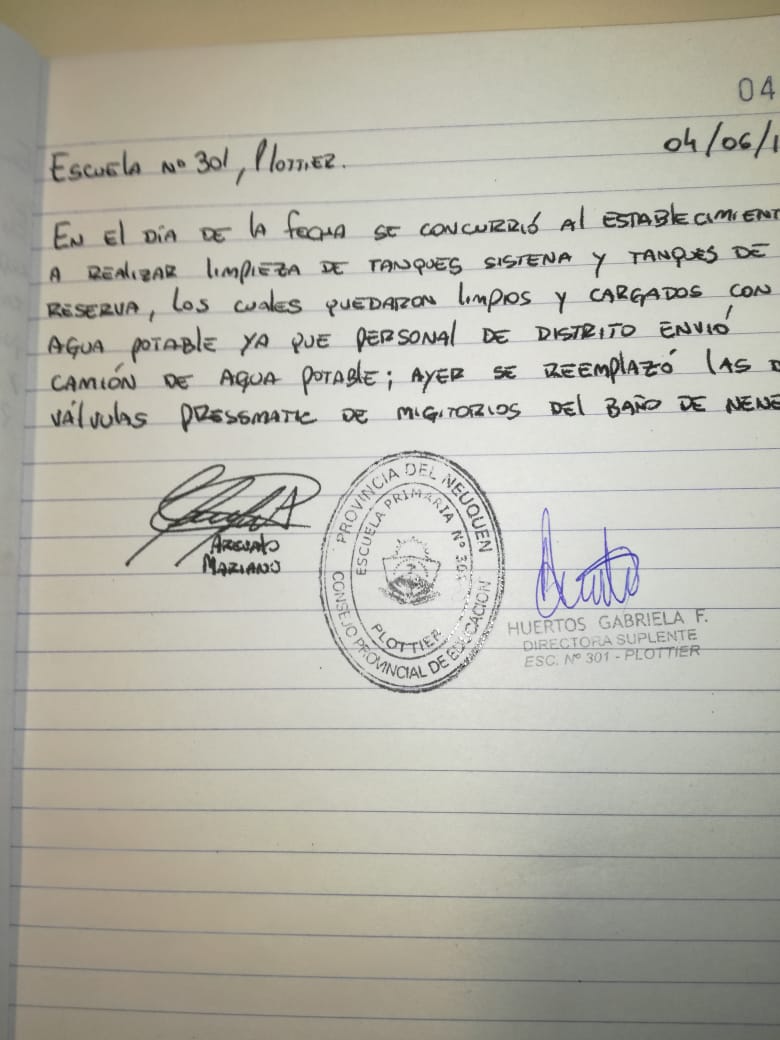 04
Escuela Nº 301, Plottier.
04/06/1
En el día de la fecha se concurrió al establecimient
a realizar limpieza de tanques sistena y tanques de
reserva, los cuales quedaron limpios y cargados con
agua potable ya que personal de distrito envió
camión de agua potable; ayer se reemplazó las d
válvulas pressmatic de migitorios del baño de nene
Mariano
PROVINCIA DEL NEUQUEN
ESCUELA PRIMARIA Nº 301
PLOTTIER
CONSEJO PROVINCIAL DE EDUCACION
HUERTOS GABRIELA F.
DIRECTORA SUPLENTE
ESC. Nº 301 - PLOTTIER